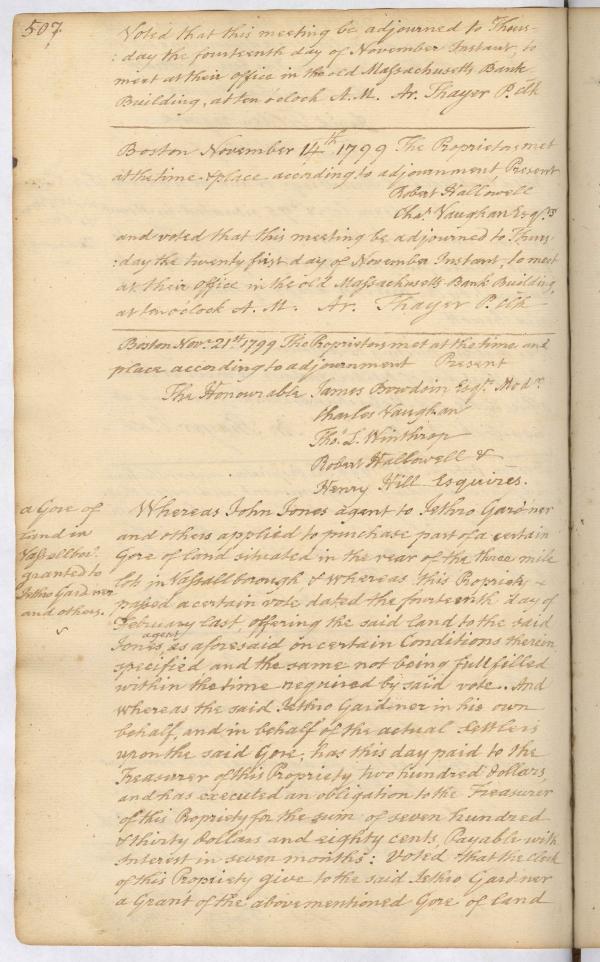 507.
Voted that this meeting be adjourned to Thurs-
:day the fourteenth day of November Instant, to
meet at their office in the old Massachusetts Bank
Building, at ten o'clock A.M. Ar. Thayer P. Clk
Boston November 14th 1799 The Proprietors met
at the time & place according to adjournment, Present
Robert Hallowell
Chas. Vaughan Esqrs
and voted that this meeting be adjourned to Thurs-
:day the twenty first day of November Instant, to meet
at their office in the old Massachusetts Bank Building,
at ten o'clock A. M. Ar. Thayer P. Clk
Boston Novr. 21st. 1799 The Proprietors met at the time and
place according to adjournment Present
The Honourable James Bowdoin Esqr. Modr.
Charles Vaughan
Thos. L. Winthrop
Robert Hallowell &
Henry Hill Esquires.
a Gore of
Land in
Vassallboro.
granted to
Jethro Gardner
and others.
Whereas John Jones agent to Jethro Gardner
and others applied to purchase part of a certain
Gore of Land situated in the rear of the three mile
lots in Vassallborough & whereas this Propriety
passed a certain vote dated the fourteenth day of
February last offering the said land to the said
Jones agent as aforesaid on certain Conditions therein
specified and the same not being fullfilled
within the time required by said vote.. And
whereas the said Jethro Gardiner in his own
behalf, and in behalf of the actual Settlers
upon the said Gore, has this day paid to the
Treasurer of this Propriety two hundred Dollars,
and has executed an obligation to the Treasurer
of this Propriety for the sum of seven hundred
& thirty Dollars and eighty cents, Payable with
Interest in seven months: Voted that the Clerk
of this Propriety give to the said Jethro Gardner
a Grant of the abovementioned Gore of Land